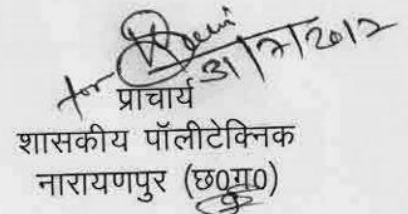 for
31/7/2012
प्राचार्य
शासकीय पॉलीटेक्निक
नारायणपुर (छ0ग0)